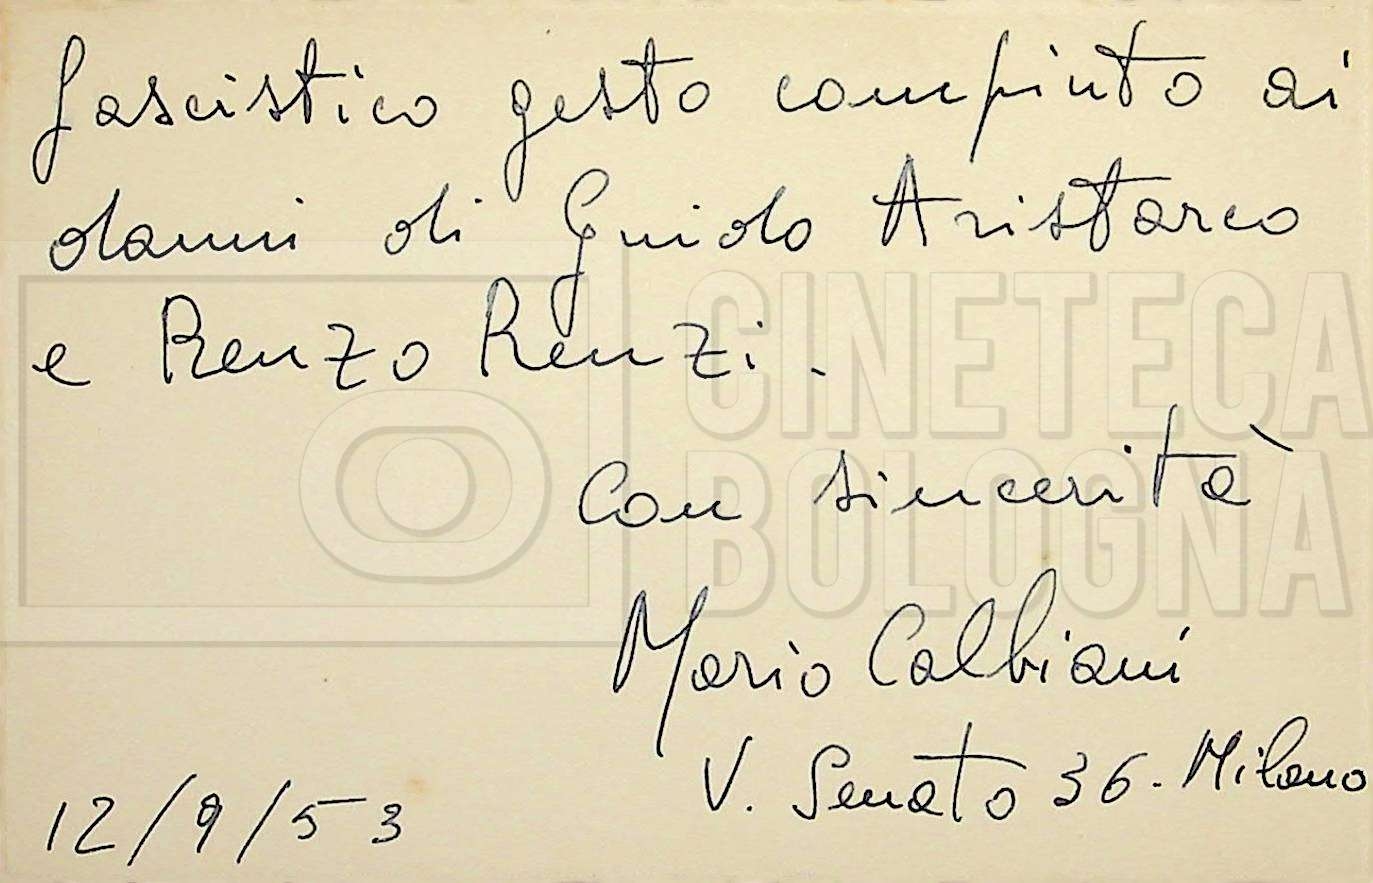 fascistico gesto compiuto ai
danni di Guido Aristarco
e Renzo Renzi.
Con sincerità
Mario Calbiani
V. Senato 36. Milano
12/9/53
CINETECA
BOLOGNA